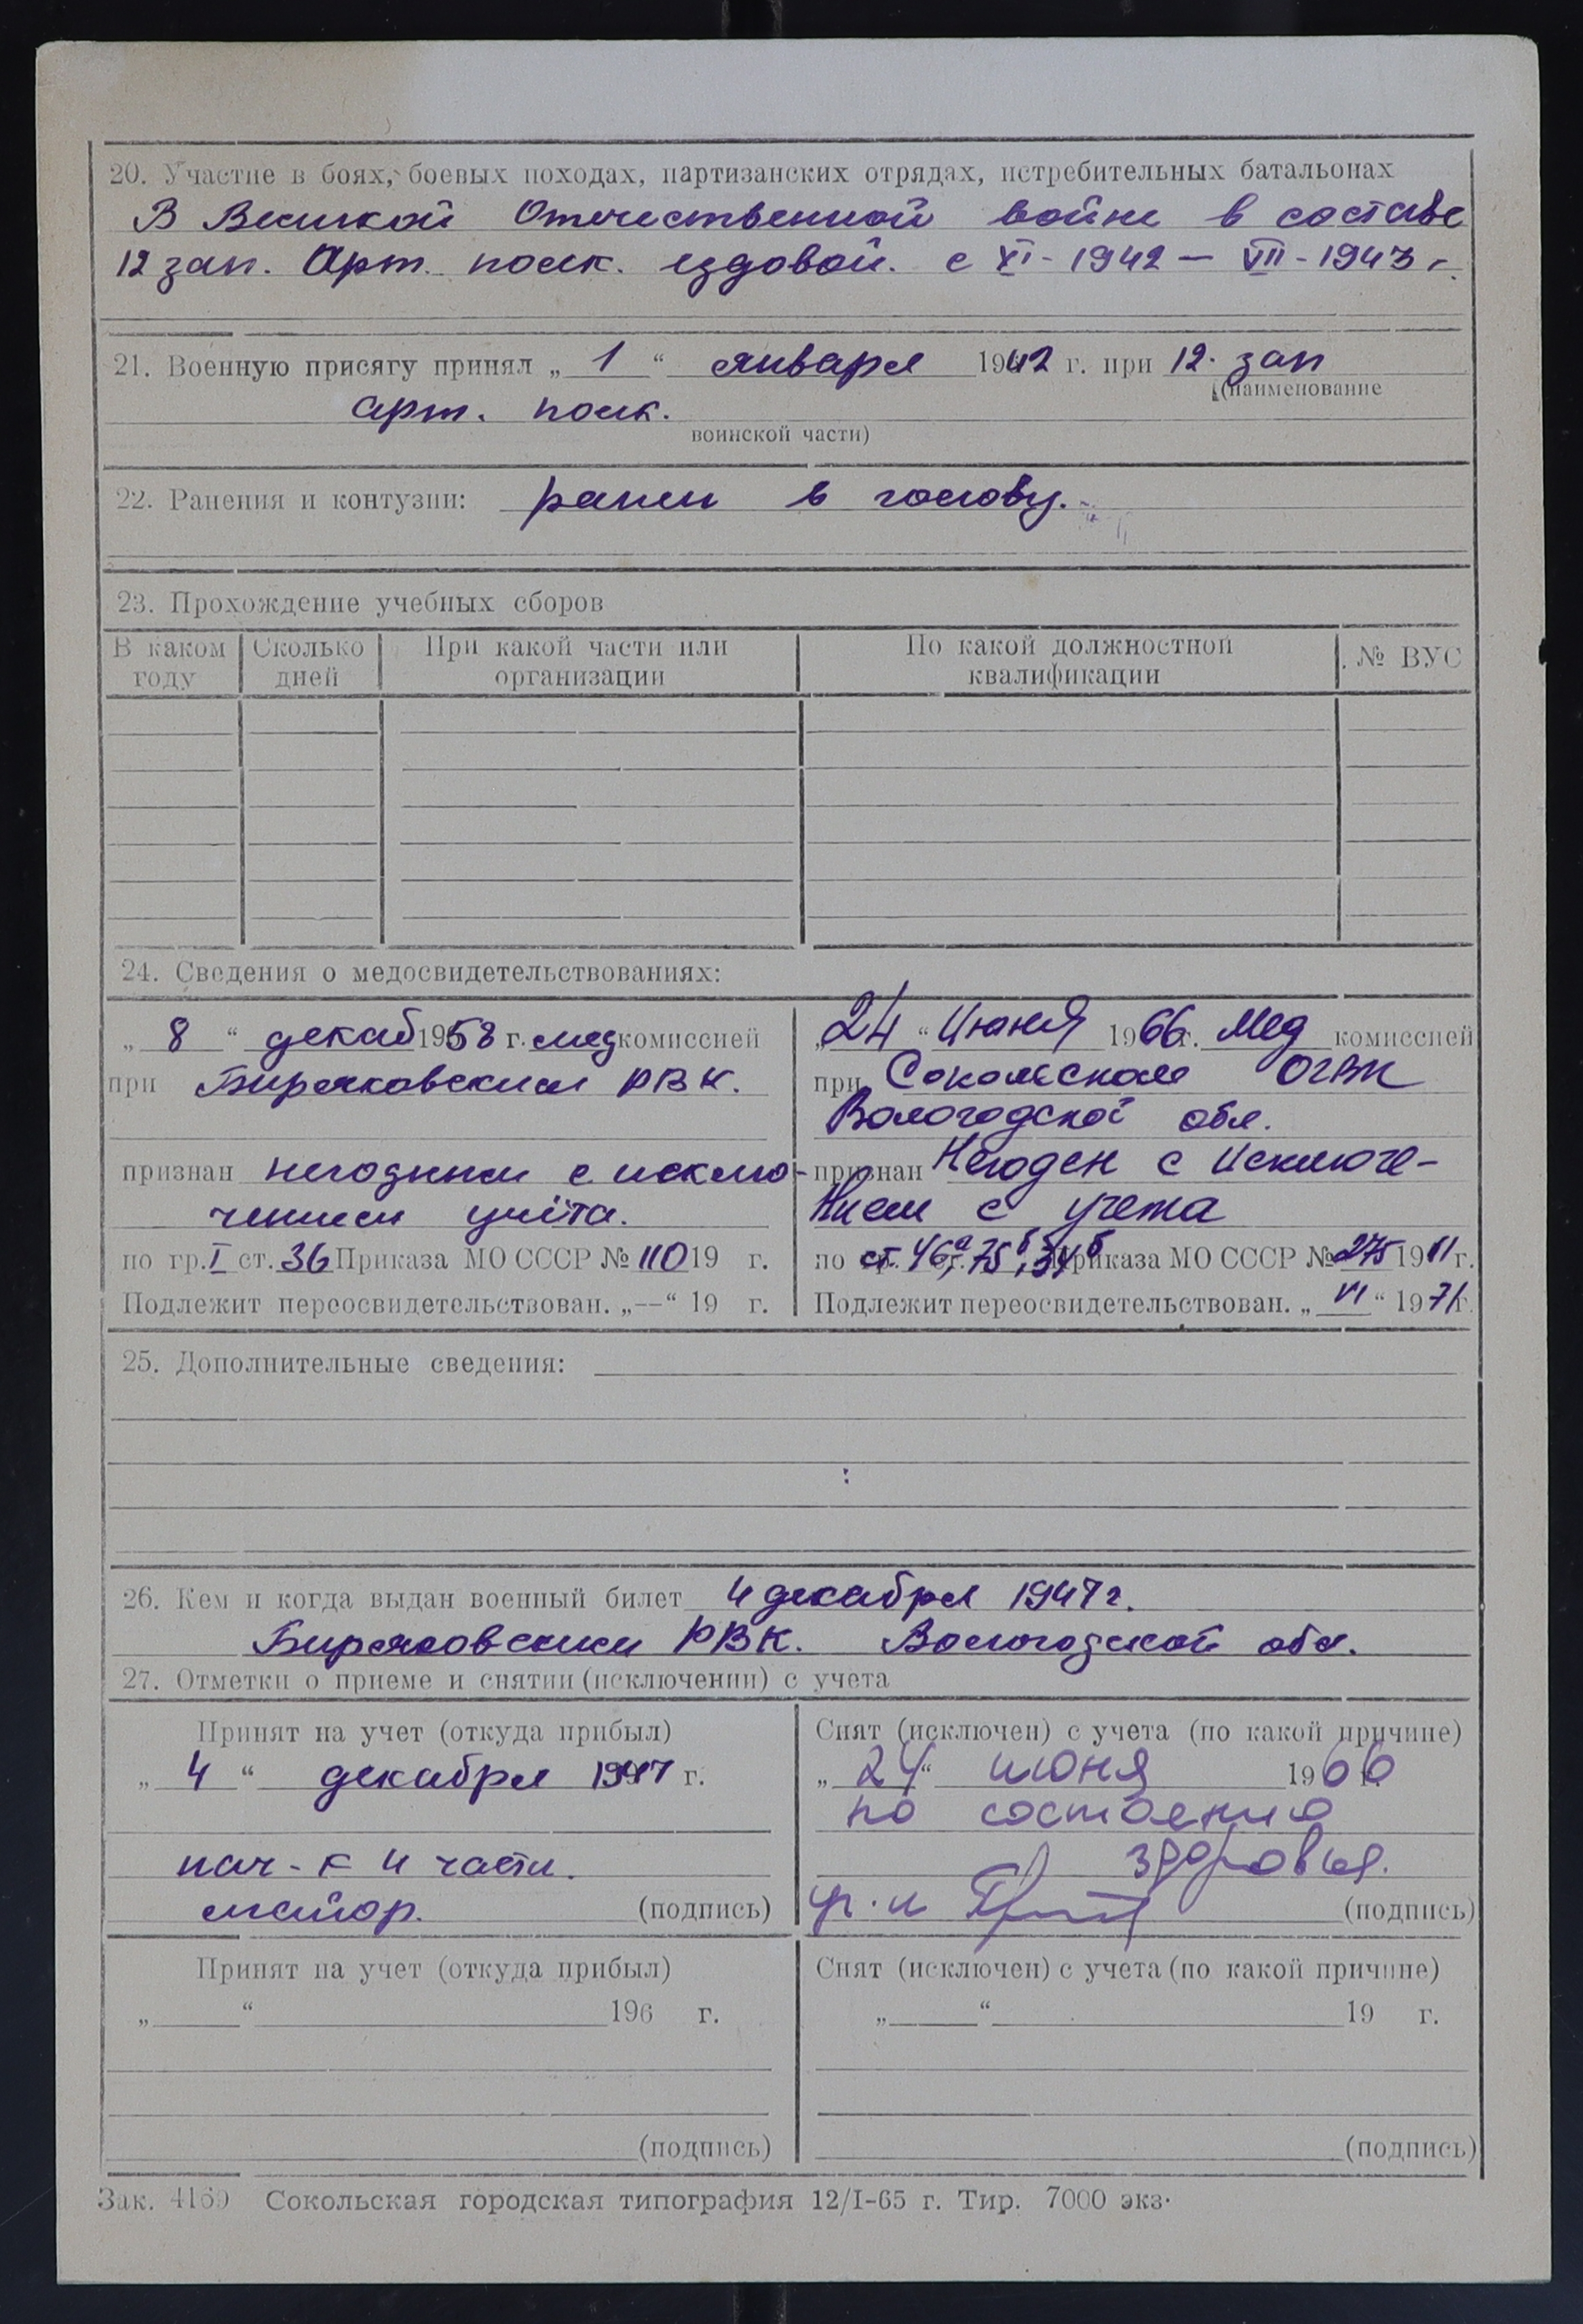 20. Участие в боях, боевых походах, партизанских отрядах, истребительных батальонах
В Великой Отечественной войне в составе
12 зап. Арт. полк. ездовой. с XI - 1942 — VIII - 1943 г.
21. Военную присягу принял „ 1 “ января 1942 г. при 12. зап
(наименование
арт. полк.
воинской части)
22. Ранения и контузии: ранен в голову.
23. Прохождение учебных сборов
В каком году | Сколько дней | При какой части или организации | По какой должностной квалификации | № ВУС
24. Сведения о медосвидетельствованиях:
„ 8 “ декаб 1958 г. мед комиссией
при Биряковским РВК.
признан негодным с исклю-
чением учёта.
по гр. I ст. 36 Приказа МО СССР № 110 19 г.
Подлежит переосвидетельствован. „—“ 19 г.
„ 24 “ Июня 1966 г. Мед комиссией
при Сокольском ОГВК
Вологодской обл.
признан Негоден с Исключе-
нием с учета
по ст. 46а, 75б, 34б Приказа МО СССР № 275 19 г.
Подлежит переосвидетельствован. „ VI “ 1971 г.
25. Дополнительные сведения:
26. Кем и когда выдан военный билет 4 декабря 1947 г.
Биряковским РВК. Вологодской обл.
27. Отметки о приеме и снятии (исключении) с учета
Принят на учет (откуда прибыл)
„ 4 “ декабря 1947 г.
нач-к 4 части.
майор. (подпись)
Снят (исключен) с учета (по какой причине)
„ 24 “ июня 1966 г.
по состоянию
здоровья.
(подпись)
Принят на учет (откуда прибыл)
„ “ 196 г.
(подпись)
Снят (исключен) с учета (по какой причине)
„ “ 19 г.
(подпись)
Зак. 4159 Сокольская городская типография 12/I-65 г. Тир. 7000 экз.